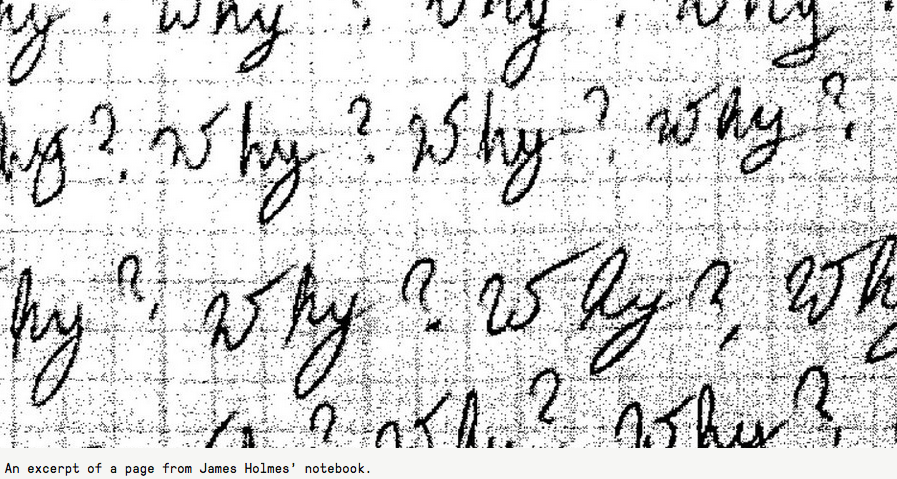 hy? Why? Why? Why?
hy? Why? Why? Why?
hy? Why? Why? Wh
Why? Why?
An excerpt of a page from James Holmes' notebook.